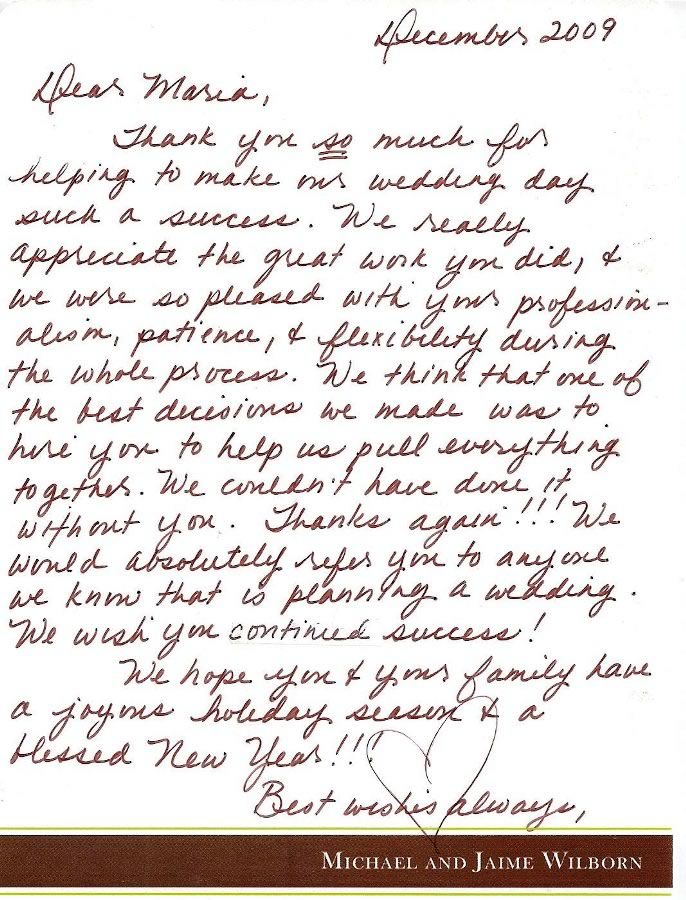 December 2009
Dear Maria,
Thank you so much for
helping to make our wedding day
such a success. We really
appreciate the great work you did, &
we were so pleased with your profession-
alism, patience, & flexibility during
the whole process. We think that one of
the best decisions we made was to
hire you to help us pull everything
together. We couldn't have done it
without you. Thanks again!!! We
would absolutely refer you to anyone
we know that is planning a wedding.
We wish you continued success!
We hope you & your family have
a joyous holiday season & a
blessed New Year!!!
Best wishes always,
MICHAEL AND JAIME WILBORN